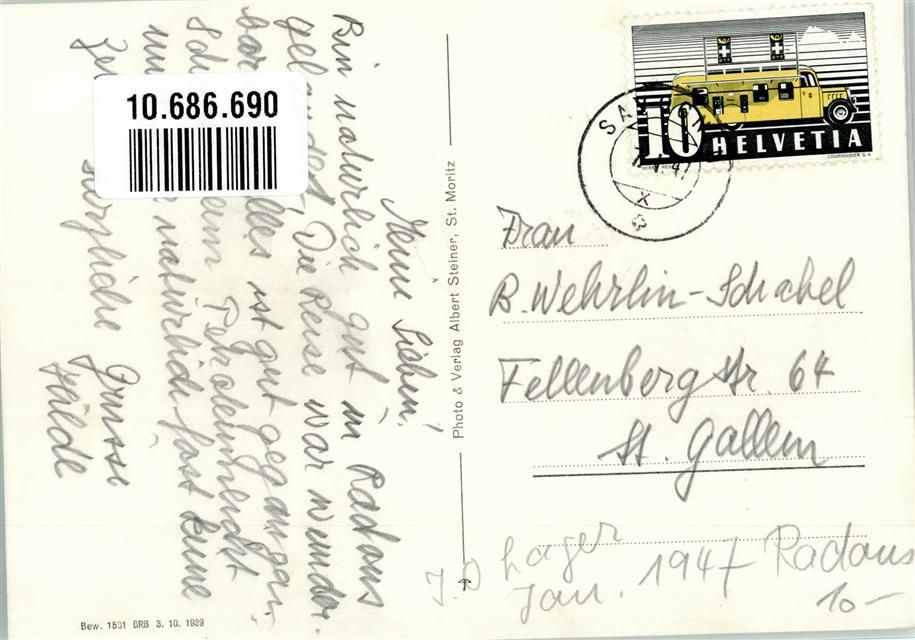 Meine Lieben!
Bin natürlich gut in Radons
gelandet, Die Reise war wunder-
bar alles ist gut gegangen.
beim Petroleumlicht
natürlich fast keine
herzliche Grüsse
Hilde
10.686.690
Photo & Verlag Albert Steiner, St. Moritz
10 HELVETIA
COURVOISIER S.A.
47
X
Frau
B. Wehrlin-Schabel
Fellenbergstr. 64
St. Gallen
J.O Lager
Jan. 1947 Radons
10-
Bew. 1501 BRB 3. 10. 1939